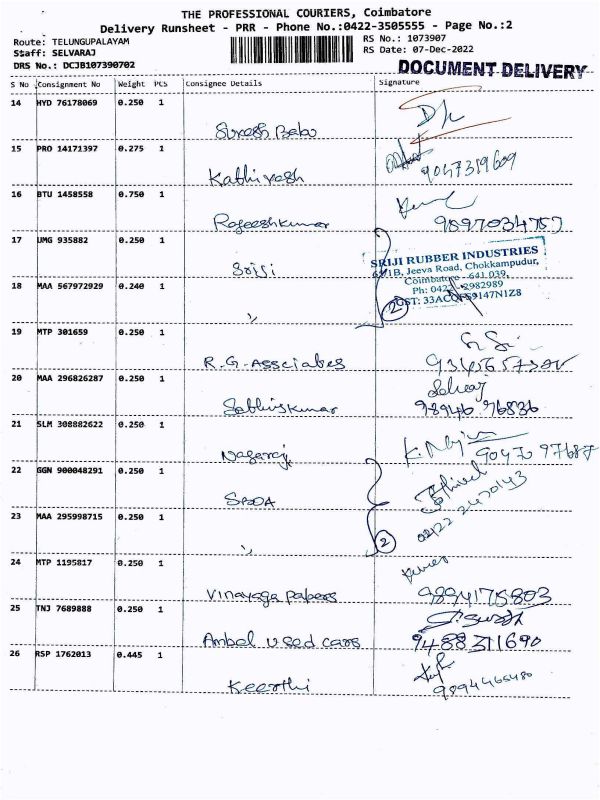 THE PROFESSIONAL COURIERS, Coimbatore
Delivery Runsheet - PRR - Phone No.:0422-3505555 - Page No.:2
Route: TELUNGUPALAYAM RS No.: 1073907
Staff: SELVARAJ RS Date: 07-Dec-2022
DRS No.: DCJB107390702 DOCUMENT DELIVERY
S No Consignment No Weight PCS Consignee Details Signature
14 HYD 76178069 0.250 1
Suresh Babu
15 PRO 14171397 0.275 1
Kathirvesh 9047319609
16 BTU 1458558 0.750 1
Rajeeshkumar 9897034757
17 UMG 935882 0.250 1
Srisi
SRIJI RUBBER INDUSTRIES
6/1B, Jeeva Road, Chokkampudur,
Coimbatore - 641 039,
18 MAA 567972929 0.240 1
Ph: 0422 - 2982989
2
"
19 MTP 301659 0.250 1
R.G. Assciates
20 MAA 296826287 0.250 1
Selvaj
Sathiskumar 98946 76836
21 SLM 308882622 0.250 1
Nagaraj 9047097687
22 GGN 900048291 0.250 1
SPDA
0422 2470143
23 MAA 295998715 0.250 1
"
2
24 MTP 1195817 0.250 1
Vinayaga papers 9894175803
25 TNJ 7689888 0.250 1
Ambal used cars 9488311690
26 RSP 1762013 0.445 1
Keerthi 9894465480